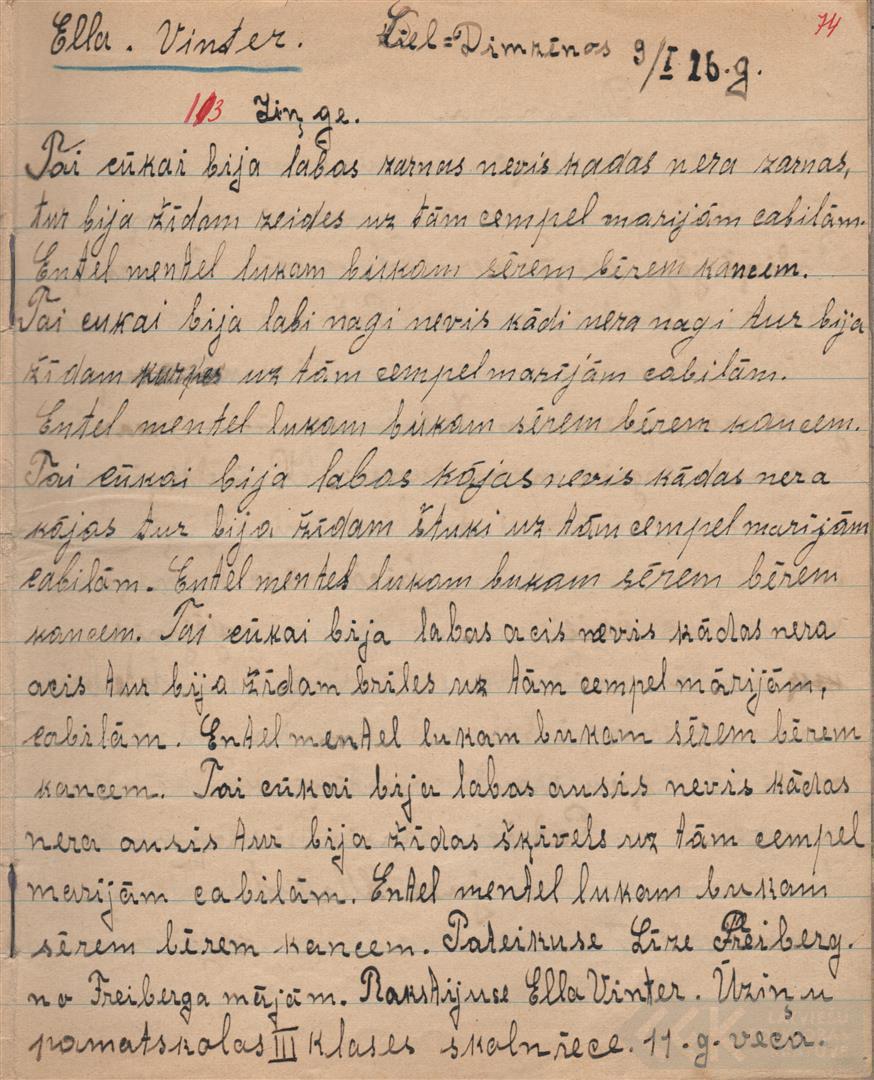 Ella. Vinter. Liel=Dimzēnas 9/I 26.g. 74
113 Ziņģe.
Tai cūkai bija labas zarnas nevis kadas nera zarnas,
tur bija žīdam zeides uz tām cempel marijām cabilām.
Entel mentel lukam bukam sērem bērem kancem.
Tai cukai bija labi nagi nevis kādi nera nagi tur bija
žīdam kurpes uz tām cempelmarijām cabilām.
Entel mentel lukam bukam sērem bērem kancem.
Tai cūkai bija labas kājas nevis kādas nera
kājas tur bija žīdam štuki uz tām cempel marijām
cabilām. Entel mentel lukam bukam sērem bērem
kancem. Tai cūkai bija labas acis nevis kādas nera
acis tur bija žīdam briles uz tām cempel mārijām,
cabilām. Entel mentel lukam bukam sērem bērem
kancem. Tai cūkai bija labas ausis nevis kādas
nera ausis tur bija žīdas šķivels uz tām cempel
marijām cabilām. Entel mentel lukam bukam
sērem bērem kancem. Pateikuse Līze Freiberg.
no Freiberga mājām. Rakstijuse Ella Vinter. Ūziņu
pamatskolas III klases skolniece. 11.g. veca.